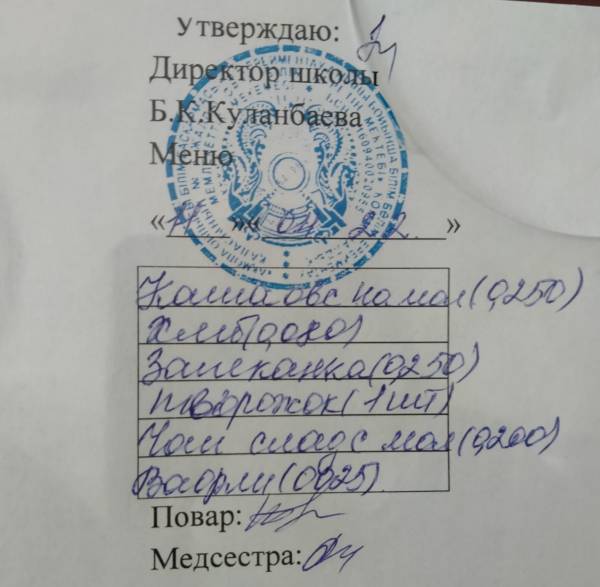 Утверждаю:
Директор школы
Б.К.Куланбаева
Меню
«11» «04 22.»
Каша овс на мол (0,250)
Хлеб (0,080)
Запеканка (0,250)
творожок (1 шт)
Чай слад с мол (0,200)
Вафли (0,025)
Повар:
Медсестра: